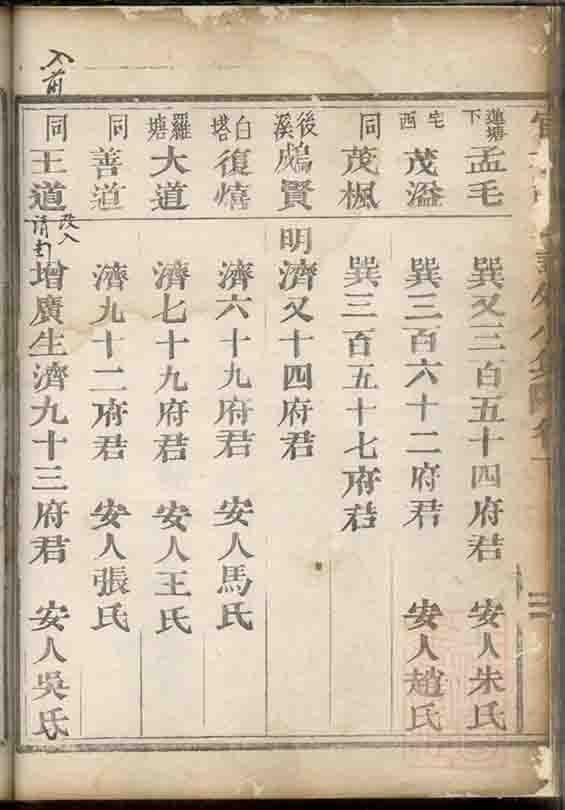 蓮塘下 孟毛 巽又三百五十四府君 安人朱氏
宅西 茂溢 巽三百六十二府君 安人趙氏
同 茂楓 巽三百五十七府君
後溪 鳷賢 明濟又十四府君
白塔 復熺 濟六十九府君 安人馬氏
羅塘 大道 濟七十九府君 安人王氏
同 善道 濟九十二府君 安人張氏
同 王道 增廣生濟九十三府君 安人吳氏
改入
入前